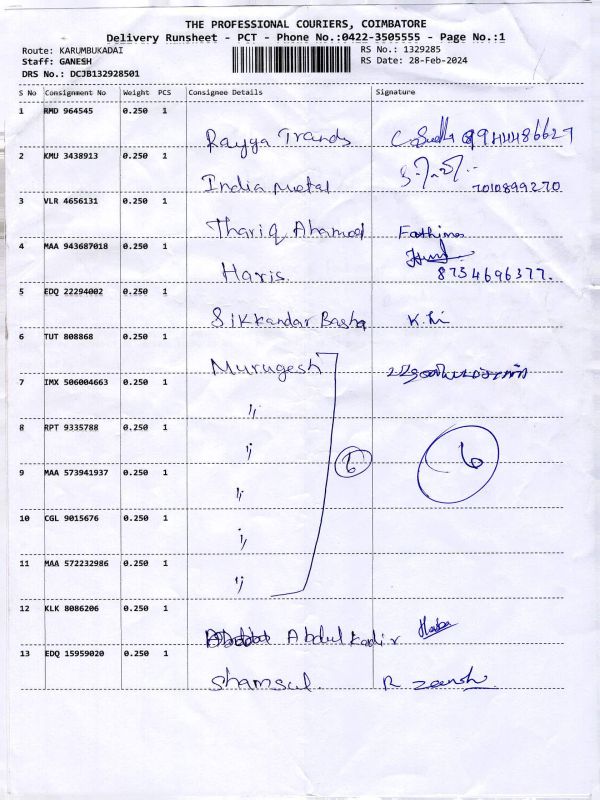 THE PROFESSIONAL COURIERS, COIMBATORE
Delivery Runsheet - PCT - Phone No.:0422-3505555 - Page No.:1
Route: KARUMBUKADAI RS No.: 1329285
Staff: GANESH RS Date: 28-Feb-2024
DRS No.: DCJB132928501
S No Consignment No Weight PCS Consignee Details Signature
1 RMD 964545 0.250 1
Rayya Trands 9944486627
2 KMU 3438913 0.250 1
India metal 7010899270
3 VLR 4656131 0.250 1
Thariq Ahamed Fathima
4 MAA 943687018 0.250 1
Haris. 8754696377.
5 EDQ 22294002 0.250 1
Sikkandar Basha
6 TUT 808868 0.250 1
Murugesh
7 IMX 506004663 0.250 1
"
8 RPT 9335788 0.250 1
"
6 6
9 MAA 573941937 0.250 1
"
10 CGL 9015676 0.250 1
"
11 MAA 572232986 0.250 1
"
12 KLK 8086206 0.250 1
Abdul Kadir
13 EDQ 15959020 0.250 1
Shamsul. R